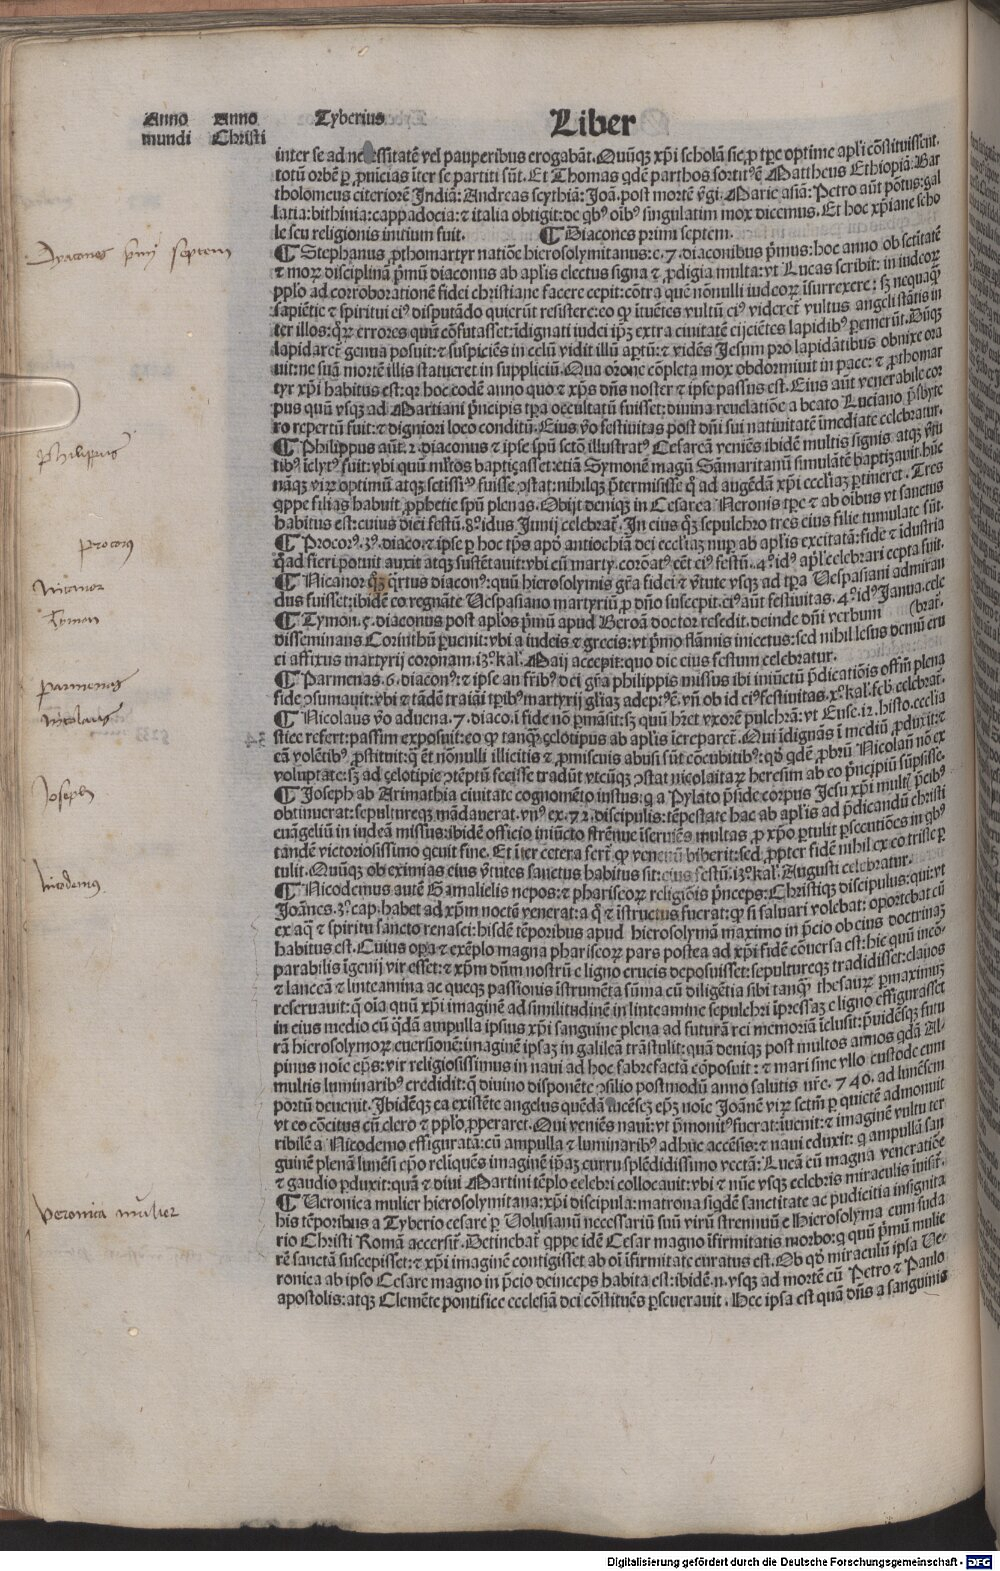 Anno mundi
Anno Christi
Tyberius
Liber
inter se ad necessitatē vel pauperibus erogabāt. Quūqʒ xp̄i scholā sic p̱ tꝑe optime apl̄i cōstituissent.
totū orbē ꝑ ꝓuīcias īter se partiti sūt. Et Thomas qdē parthos sortitꝰ ē Mattheus Ethiopiā: Bar
tholomeus citeriorē Indiā: Andreas scythiā: Joā. post mortē v̄gi. Marie asiā: Petro aūt pōtus: gal
latia: bithinia: cappadocia: ⁊ italia obtigit: de qbꝰ oībꝰ singulatim mox dicemus. Et hoc xp̄iane scho
le seu religionis initium fuit. ¶ Diacones primi septem.
Dyacones primj septem
¶ Stephanus ꝓthomartyr natiōe hierosolymitanus: e. 7. diaconibus p̄mus: hoc anno ob sctītatē
⁊ moꝝ disciplinā p̄mū diaconus ab apl̄is electus signa ⁊ ꝓdigia multa: vt Lucas scribit: in iudeoꝝ
pplo ad corroborationē fidei christiane facere cepit: cōtra quē nōnulli iudeoꝝ īsurrexere: sʒ nequaqʒ
sapiētie ⁊ spiritui eiꝰ disputādo quierūt resistere: eo ꝙ ītuētes vultū eiꝰ viderēt vultus angeli stātis in
ter illos: qꝝ errores quū cōfutasset: īdignati iudei ipʒ extra ciuitatē eijciētes lapidibꝰ ꝑemerūt. Dūqʒ
lapidaret̄ genua posuit: ⁊ suspiciēs in celū vidit illū aꝑtū: ⁊ vidēs Jesum pro lapidātibus obnixe ora
uit: ne suā mortē illis statueret in suppliciū. Qua ōrone cōpleta mox obdormiuit in pace: ⁊ ꝓthomar
tyr xp̄i habitus est: qꝛ hoc eodē anno quo ⁊ xp̄s dn̄s noster ⁊ ipse passus est. Eius aūt venerabile cor
pus quū vsqʒ ad Martiani p̄ncipis tꝑa occultatū fuisset: diuina reuelatiōe a beato Luciano p̄sbyte
ro repertū fuit: ⁊ digniori loco conditū. Eius v̄o festiuitas post dn̄i sui natiuitatē īmediate celebratur.
Philippus
¶ Philippus aūt. 2. diaconus ⁊ ipse spū sctō illustratꝰ Cesareā veniēs ibidē multis signis atqʒ v̄tu
tibꝰ īclytꝰ fuit: vbi quū ml̄tos baptiçasset: etiā Symonē magū Samaritanū simulātē baptizauit. hūc
nāqʒ viꝝ optimū atqʒ sctissimꝰ fuisse ꝯstat: nihilqʒ p̄termisisse qd ad augēdā xp̄i ecclīaʒ ꝑtineret. Tres
qppe filias habuit ꝓphetie spū plenas. Obijt deniqʒ in Cesarea Neronis tꝑe ⁊ ab oībus vt sanctus
habitus est: cuius diei festū. 8.º idus Junij celebrat̄. In eius qʒ sepulchro tres eius filie tumulate sūt.
Procorus
¶ Procorꝰ. 3.º diaco. ⁊ ipse ꝑ hoc tp̄s apd antiochiā dei eccliaʒ nuꝑ ab aplis excitatā: fide ⁊ īdustria
qad fieri potuit auxit atqʒ sustētauit: vbi cū marty. coronatꝰ eēt eiꝰ festū. 4.º idꝰ apl̄. celebrari cepta fuit.
Nicanor
¶ Nicanor qʒ qrtus diaconꝰ: quū hierosolymis gr̄a fidei ⁊ v̄tute vsqʒ ad tꝑa Vespasiani admiran
dus fuisset: ibidē eo regnāte Vespasiano martyriū ꝓ dn̄o suscepit. eiꝰ aūt festiuitas. 4.º idꝰ Janua. cele
Tymon
¶ Tymon. 5. diaconus post apl̄os p̄mū apud Beroā doctor resedit. deinde dn̄i verbum (brat̄.
disseminans Corinthū ꝑuenit: vbi a iudeis ⁊ grecis: vt p̄mo flāmis iniectus: sed nihil lesus demū cru
ci affixus martyrij coronam. 13.º kal̄. Maij accepit: quo die eius festum celebratur.
Parmenas
¶ Parmenas. 6. diaconꝰ: ⁊ ipse an fr̄ibꝰ dei gr̄a philippis missus ibi iniūctū p̄dicatiōis offm̄ plena
fide ꝯsumauit: vbi ⁊ tādē traiāi tꝑibꝰ martyrij gl̄iaʒ adeptꝰ ē. vn̄ ob id eiꝰ festiuitas. x.º kal̄. feb. celebrat̄.
Nicolaus
¶ Nicolaus v̄o aduena. 7. diaco. ī fide nō ꝑmāsit: sʒ quū h̄ret vxorē pulchrā: vt Euse. 12. histo. ecclīa
stice refert: passim exposuit: eo ꝙ tanqʒ çelotipus ab aplis īcreparet̄. Qui īdignās ī mediū ꝓduxit: ⁊
eā volētibꝰ ꝓstituit: q ēt nōnulli illicitis ⁊ ꝓmiscuis abusi sūt cōcubitibꝰ: qd qdē ꝓbrū Nicolaū nō ex
voluptate: sʒ ad çelotipie ꝯtēptū fecisse tradūt vtcūqʒ ꝯstat nicolaitaꝝ heresim ab eo p̄ncipiū sūpsisse.
Joseph
¶ Joseph ab Arimathia ciuitate cognomēto iustus: q a Pylato p̄side corpus Jesu xp̄i multꝭ p̄cibꝰ
obtinuerat: sepultureqʒ mādauerat. vnꝰ ex. 72. discipulis: tēpestate hac ab aplis ad p̄dicandū christi
euāgeliū in iudeā missus: ibidē officio iniūcto strēnue īseruiēs multas ꝓ xp̄o ꝑtulit ꝑsecutiōes in qbꝰ
tandē victoriosissimo qeuit fine. Et īter cetera fert̄ ꝙ venenū biberit: sed ꝓpter fidē nihil ex eo triste ꝑ
tulit. Quūqʒ ob eximias eius v̄tutes sanctus habitus sit: eius festū. 13.º kal̄. Augusti celebratur.
Nicodemus
¶ Nicodemus autē Gamalielis nepos: ⁊ phariseoꝝ religiōis p̄nceps: Christiqʒ discipulus: qui: vt
Joānes. 3.º cap. habet ad xp̄m noctē venerat: a q ⁊ īstructus fuerat: ꝙ si saluari volebat: oportebat cū
ex aq ⁊ spiritu sancto renasci: hisdē tēporibus apud hierosolymā maximo in p̄cio ob eius doctrinaʒ
habitus est. Cuius oꝑa ⁊ exēplo magna phariseoꝝ pars postea ad xp̄i fidē cōuersa est: hic quū incō-
parabilis īgenij vir esset: ⁊ xp̄m dn̄m nostrū e ligno crucis deposuisset: sepultureqʒ tradidisset: clauos
⁊ lanceā ⁊ linteamina ac queqʒ passionis īstrumēta sūma cū diligētia sibi tanqʒ thesauꝝ ꝑmaximuʒ
reseruauit: q oīa quū xp̄i imaginē ad similitudinē in linteamine sepulchri īpressaʒ e ligno effigurasset
in eius medio cū qdā ampulla ipsius xp̄i sanguine plena ad futurā rei memoriā īclusit: p̄uidēsqʒ futu
rā hierosolymoꝝ euersionē: imaginē ipsaʒ in galileā trāstulit: quā deniqʒ post multos annos qdā Al-
pinus noīe ep̄s: vir religiosissimus in naui ad hoc fabrefacta cōposuit: ⁊ mari sine vllo custode cum
multis luminaribꝰ credidit: q diuino disponēte ꝯsilio postmodū anno salutis nr̄e. 740. ad lunēsem
portū deuenit. Ibidēqʒ ea existēte angelus quēdā lucēsez ep̄ʒ noīe Joānē viꝝ sctm̄ ꝑ quietē admonuit
vt eo cōcitus cū clero ⁊ pplo ꝓperaret. Qui veniēs nauī: vt p̄monitꝰ fuerat: īuenit: ⁊ imaginē vultu ter
ribilē a Nicodemo effiguratā: cū ampulla ⁊ luminaribꝰ adhuc accēsis: ⁊ naui eduxit: q ampullā san
guinē plenā lunēsi ep̄o reliquēs imaginē ip̄aʒ curru splēdidissimo vectā: Lucā cū magna veneratiōe
⁊ gaudio ꝑduxit: quā ⁊ diui Martini tēplo celebri collocauit: vbi ⁊ nūc vsqʒ celebris miraculis īuisit̄.
Veronica mulier
¶ Veronica mulier hierosolymitana: xp̄i discipula: matrona sigdē sanctitate ac pudicitia insignita
his tēporibus a Tyberio cesare ꝑ Volusianū necessariū suū virū strennuū e Hierosolyma cum suda
rio Christi Romā accersit̄. Detinebat̄ qppe idē Cesar magno īfirmitatis morbo: q quū p̄mū mulie
rē sanctā suscepisset: ⁊ xp̄i imaginē contigisset ab oī īfirmitate curatus est. Ob qd miraculū ipsa Ve-
ronica ab ipso Cesare magno in p̄cio deinceps habita est: ibidē. n. vsqʒ ad mortē cū Petro ⁊ Paulo
apostolis: atqʒ Clemēte pontifice ecclesiā dei cōstituēs ꝑseuerauit. Hec ipsa est quā dn̄s a sanguinis
Digitalisierung gefördert durch die Deutsche Forschungsgemeinschaft - DFG